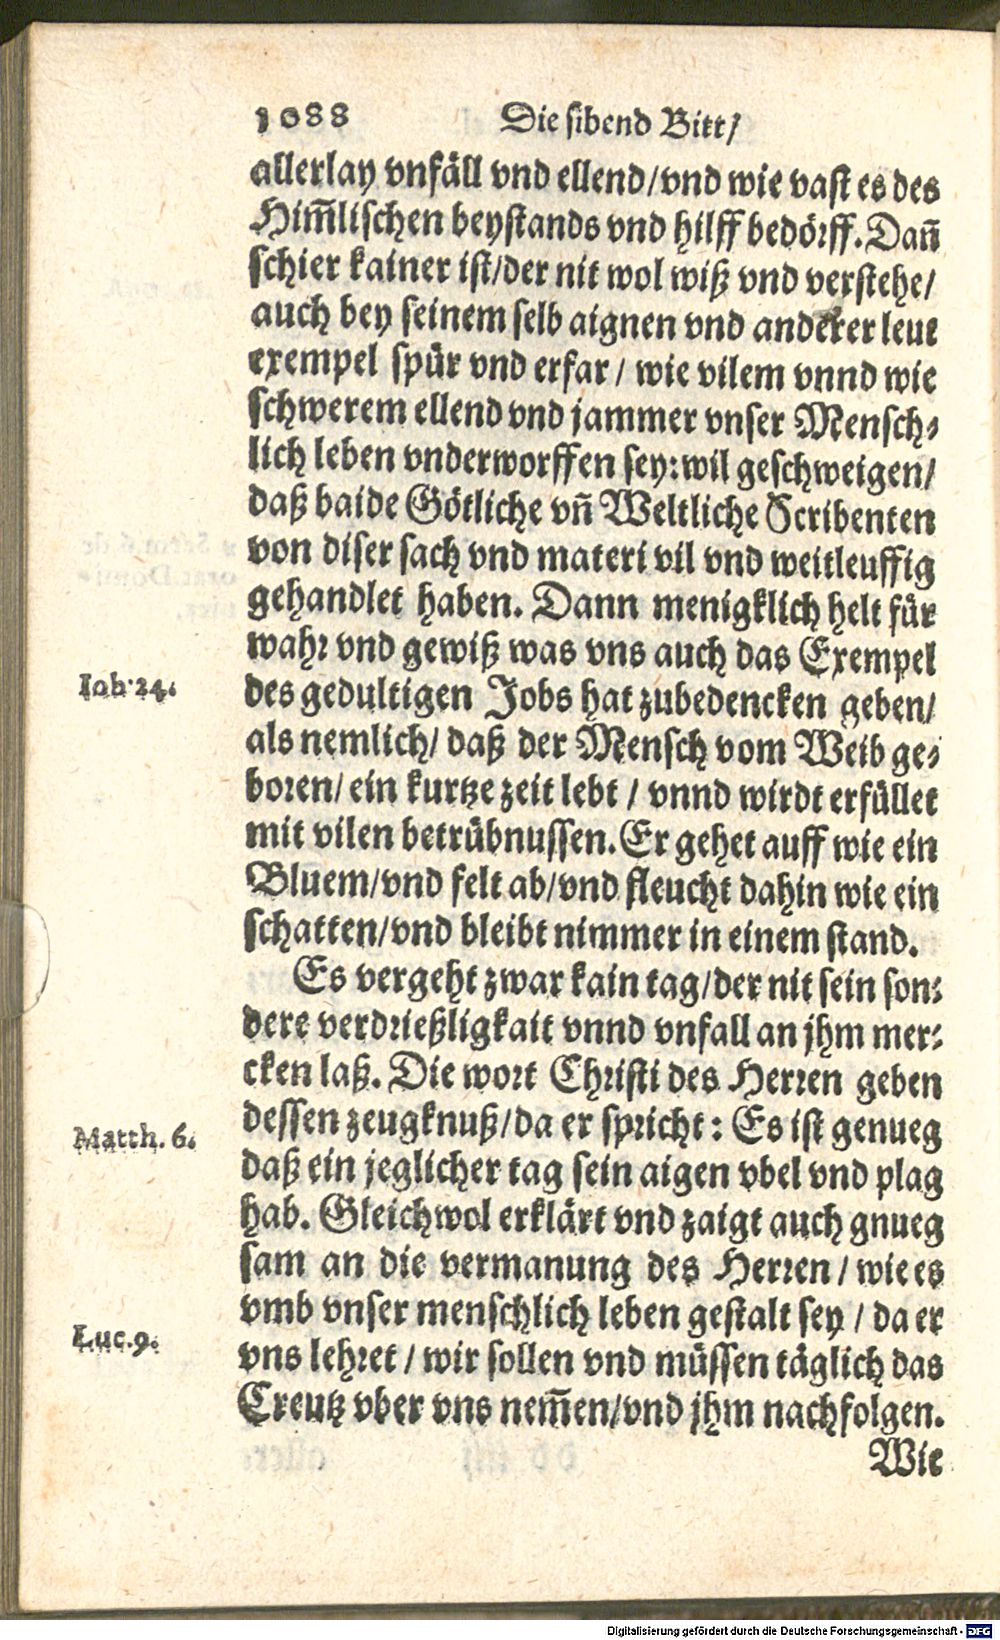 1088 Die sibend Bitt/
allerlay vnfäll vnd ellend/vnd wie vast es des
Him̃lischen beystands vnd hilff bedörff. Dañ
schier kainer ist/der nit wol wiß vnd verstehe/
auch bey seinem selb aignen vnd anderer leut
exempel spür vnd erfar / wie vilem vnnd wie
schwerem ellend vnd jammer vnser Mensch-
lich leben vnderworffen sey: wil geschweigen/
daß baide Götliche vñ Weltliche Scribenten
von diser sach vnd materi vil vnd weitleuffig
gehandlet haben. Dann menigklich helt für
wahr vnd gewiß was vns auch das Exempel
Iob 14.
des gedultigen Jobs hat zubedencken geben/
als nemlich/ daß der Mensch vom Weib ge-
boren/ ein kurtze zeit lebt / vnnd wirdt erfüllet
mit vilen betrübnussen. Er gehet auff wie ein
Bluem/vnd felt ab/vnd fleucht dahin wie ein
schatten/vnd bleibt nimmer in einem stand.
Es vergeht zwar kain tag/der nit sein son-
dere verdrießligkait vnnd vnfall an jhm mer-
cken laß. Die wort Christi des Herren geben
Matth. 6.
dessen zeugknuß/da er spricht: Es ist genueg
daß ein jeglicher tag sein aigen vbel vnd plag
hab. Gleichwol erklärt vnd zaigt auch gnueg
sam an die vermanung des Herren / wie es
vmb vnser menschlich leben gestalt sey / da er
Luc. 9.
vns lehret / wir sollen vnd müssen täglich das
Creutz vber vns nem̃en/vnd jhm nachfolgen.
Wie
Digitalisierung gefördert durch die Deutsche Forschungsgemeinschaft - DFG